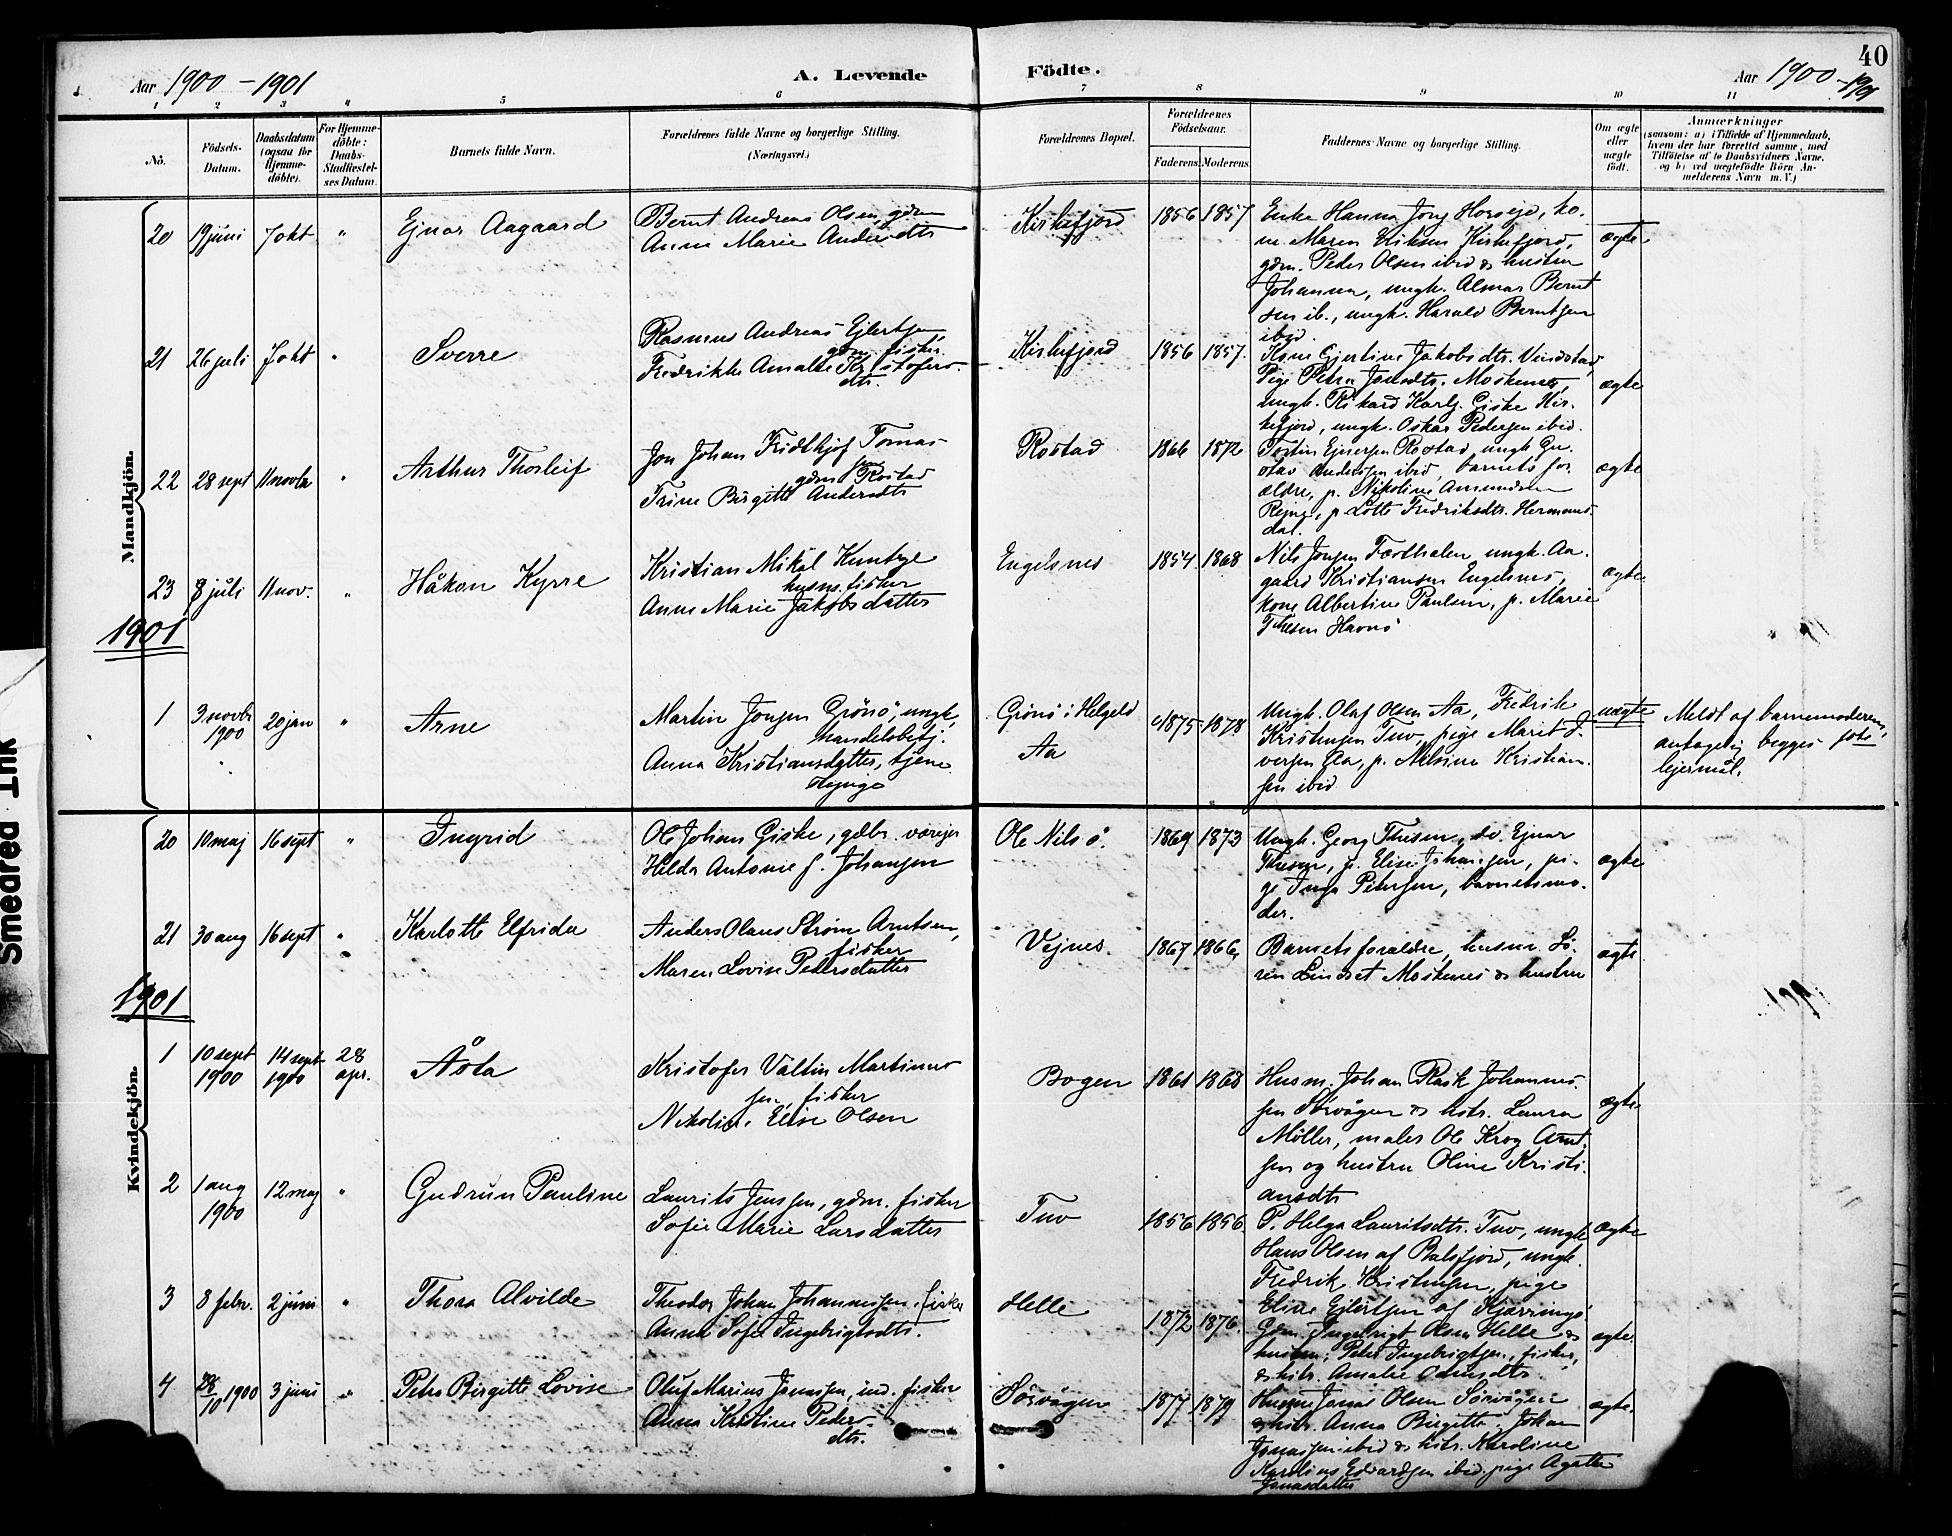 40
Aar 1900-1901
A. Levende
Födte.
Aar 1900-1901
1 2 3 4 5 6 7 8 9 10 11
No.
Födsels-
Datum.
Daabsdatum
(ogsaa for
Hjemme-
døbte).
For Hjemme-
døbte:
Daabs-
Stadfæstel-
ses Datum.
Barnets fulde Navn.
Forældrenes fulde Navne og borgerlige Stilling.
(Næringsvei.)
Forældrenes Bopæl.
Forældrenes
Födselsaar.
Faderens. Moderens.
Faddernes Navne og borgerlige Stilling.
Om ægte
eller
uægte
født.
Anmærkninger
(saasom: a) i Tilfælde af Hjemmedaab,
hvem der har forrettet samme, med
Tilföielse af to Daabsvidners Navne,
og b) ved uægtefödte Börn An-
melderens Navn m. V.)
Mandkjön.
20 19 juni 7 okt " Ejnar Aagaard
Bernt Andreas Olsen, gdm
Anne Marie Andersdtr
Kirkefjord 1856 1857
Enke Hanna Jörg. Horseid, ko-
ne Maren Eliksen Kirkefjord,
gdm. Peder Olsen ibid & hustru
Johanna, ungk. Almar Bernt
sen ib., ungk. Harald Berntsen
ibid
ægte
21 26 juli 7 okt " Sverre
Rasmus Andreas Ejlertsen
gdm. fisker
Fredrikke Amalie Kristofers-
dtr.
Kirkefjord 1856 1857.
Kone Gjertine Jakobsdtr. Vindstad,
Pige Petra Jensdtr. Moskenes,
ungk. Rikard Karlj. Giske Kir-
kefjord, ungk. Oskar Pedersen ibid.
ægte
22 28 sept 11 novbr " Arthur Thorleif
Jon Johan Fridthjof Tomas-
sen
gdm Rostad
Trine Birgitte Andersdtr
Rostad 1866 1872
Tostin Ejnersen Rostad, ungk Gu-
stav Andersen ibid, barnets for
ældre, p. Nikoline Amundsen
Rejne, p Lotte Fredriksdtr. Hermans-
dal.
ægte
23 8 juli 11 nov. " Håkon Kyrre
Kristian Mikal
husm. fisker
Anne Marie Jakobsdatter
Engelsnes 1854 1868
Nils Jonsen ungk. Aa-
gaard Kristiansen Engelsnes,
kone Albertine Paulsen, p. Marie
Thesen Havnö
ægte
1901
1 3 novbr 20 jan " Arne
1900
Martin Jonsen Grönö, ungk,
handelsbetj.
Anna Kristiansdatter, tjene
Rejnge
Grönö i Helgeld
Aa
1875 1878
Ungk. Olaf Olsen Aa, Fredrik
Kristensen Tuv, pige Marit I-
versen Aa, p. Nilsine Kristian-
sen ibid
uægte
Meldt af barnemoderen,
antagelig begges förste
lejermål.
Kvindekjön.
20 10 maj 16 sept " Ingrid
Ole Johan Giske, gdbr. væreier
Hilda Antonie f. Johansen
Ole Nilsö. 1869 1873
Ungk. Georg Thesen, do. Ejnar
Thesen, p. Elise Johansen, pi-
ge Inga Petersen, barnets mo-
der.
ægte
21 30 aug 16 sept " Karlotte Elfrida
Anders Olaus Strøm Arntsen,
fisker
Maren Lovise Pedersdatter
Vejnes 1867 1866
Barnets forældre, husm. Sö-
ren Lindset Moskenes & hustru
ægte
1901
1 10 sept 14 sept 28 Åsta
1900 1900 apr.
Kristofer Valtin Martinus-
sen, fisker
Nikoline Elise Olsen
Bogen 1861 1868
Husm. Johan Rask Johannes-
sen Sörvågen & hstr. Laura
Møller, maler Ole Krog Arnt-
sen og hustru Oline Kristi-
ansdtr
ægte
2 1 aug 12 maj " Gudrun Pauline
1900
Laurits Jenssen, gdm. fisker
Sofie Marie Larsdatter
Tuv 1856 1856.
P. Helga Lauritsdtr. Tuv, ungk
Hans Olsen af Balsfjord, ungk.
Fredrik Kristensen, pige
Eline Ejlertsen af Kjærringö
ægte
3 8 febr. 2 juni " Thora Alvilde
Theodor Johan Johannessen, fisker
Anna Sofie Ingebrigtsdtr.
Helle 1872 1876.
Gdm. Ingebrigt Olsen Helle &
hustru, Peter Ingebrigtsen, fisker,
& hstr. Amalie
ægte
4 /10 1900 3 juni " Petra Birgitte Lovise
Oluf Marius Jonassen, ind. fisker
Anna Kristine Peders-
dtr.
Sörvågen 1877 1879
Husm Jonas Olsen Sörvågen
& hstr. Anna Birgitte, Johan
Jonassen ibid & hstr. Karoline
Karolius Edvardsen ibid, pige Agathe
Jonasdatter
ægte.
Smeared Ink